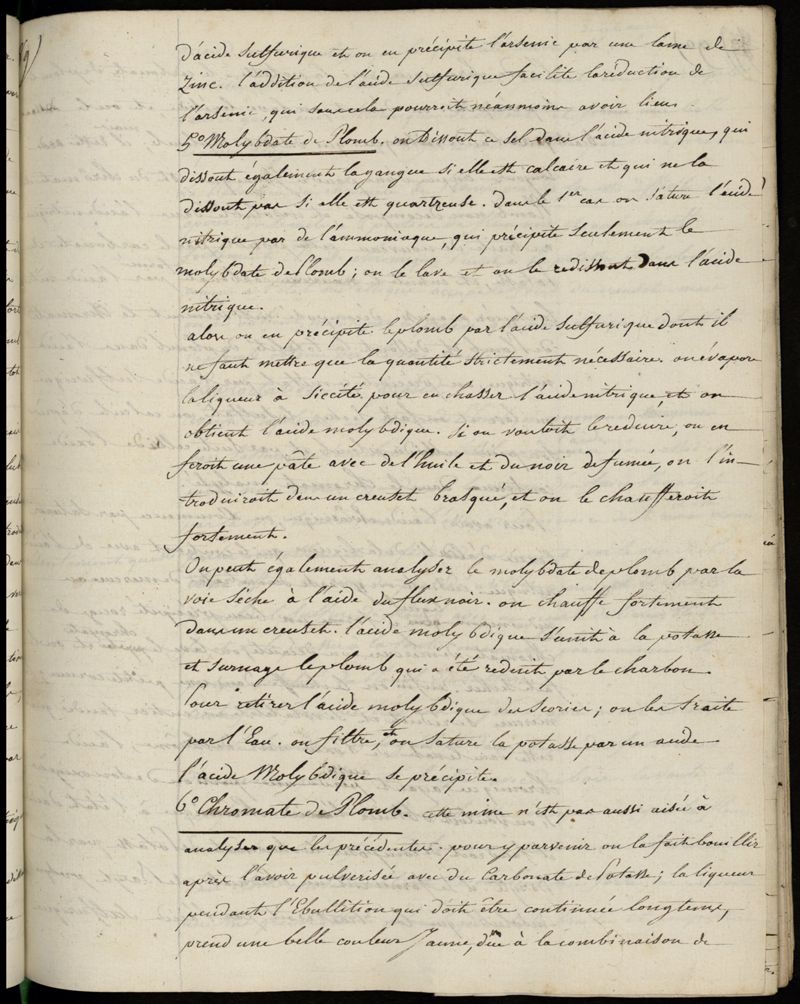 d'acide sulfurique et on en précipite l'arsenic par une lame de
Zinc. l'addition de l'acide sulfurique facilite la réduction de
l'arsenic, qui sans cela pourroit néanmoins avoir lieu.
5° Molybdate de Plomb. on Dissout ce sel dans l'acide nitrique, qui
dissout également la gangue si elle est calcaire et qui ne la
dissout pas si elle est quartzeuse. dans le 1er cas on sature l'acide
nitrique par de l'ammoniaque, qui précipite seulement le
molybdate de Plomb; on le lave et on le redissout dans l'acide
nitrique.
alors on en précipite le plomb par l'acide sulfurique dont il
ne faut mettre que la quantité strictement nécessaire. on évapore
la liqueur à siccité pour en chasser l'acide nitrique, et on
obtient l'acide molybdique. si on vouloit le reduire, on en
feroit une pâte avec de l'huile et du noir de fumée, on l'in-
troduiroit dans un creuset brasqué, et on le chaufferoit
fortement.
On peut également analyser le molybdate de plomb par la
voie sèche à l'aide du flux noir. on chauffe fortement
dans un creuset. l'acide molybdique s'unit à la potasse
et surnage le plomb qui a été reduit par le charbon.
Pour retirer l'acide molybdique des scories; on les traite
par l'Eau. on filtre, et on sature la potasse par un acide
l'acide Molybdique se précipite.
6° Chromate de Plomb. cette mine n'est pas aussi aisée à
analyser que les précédentes. pour y parvenir on la fait bouillir
après l'avoir pulverisée avec du Carbonate de Potasse; la liqueur
pendant l'Ebullition qui doit être continuée longtems,
prend une belle couleur Jaune, due à la combinaison de